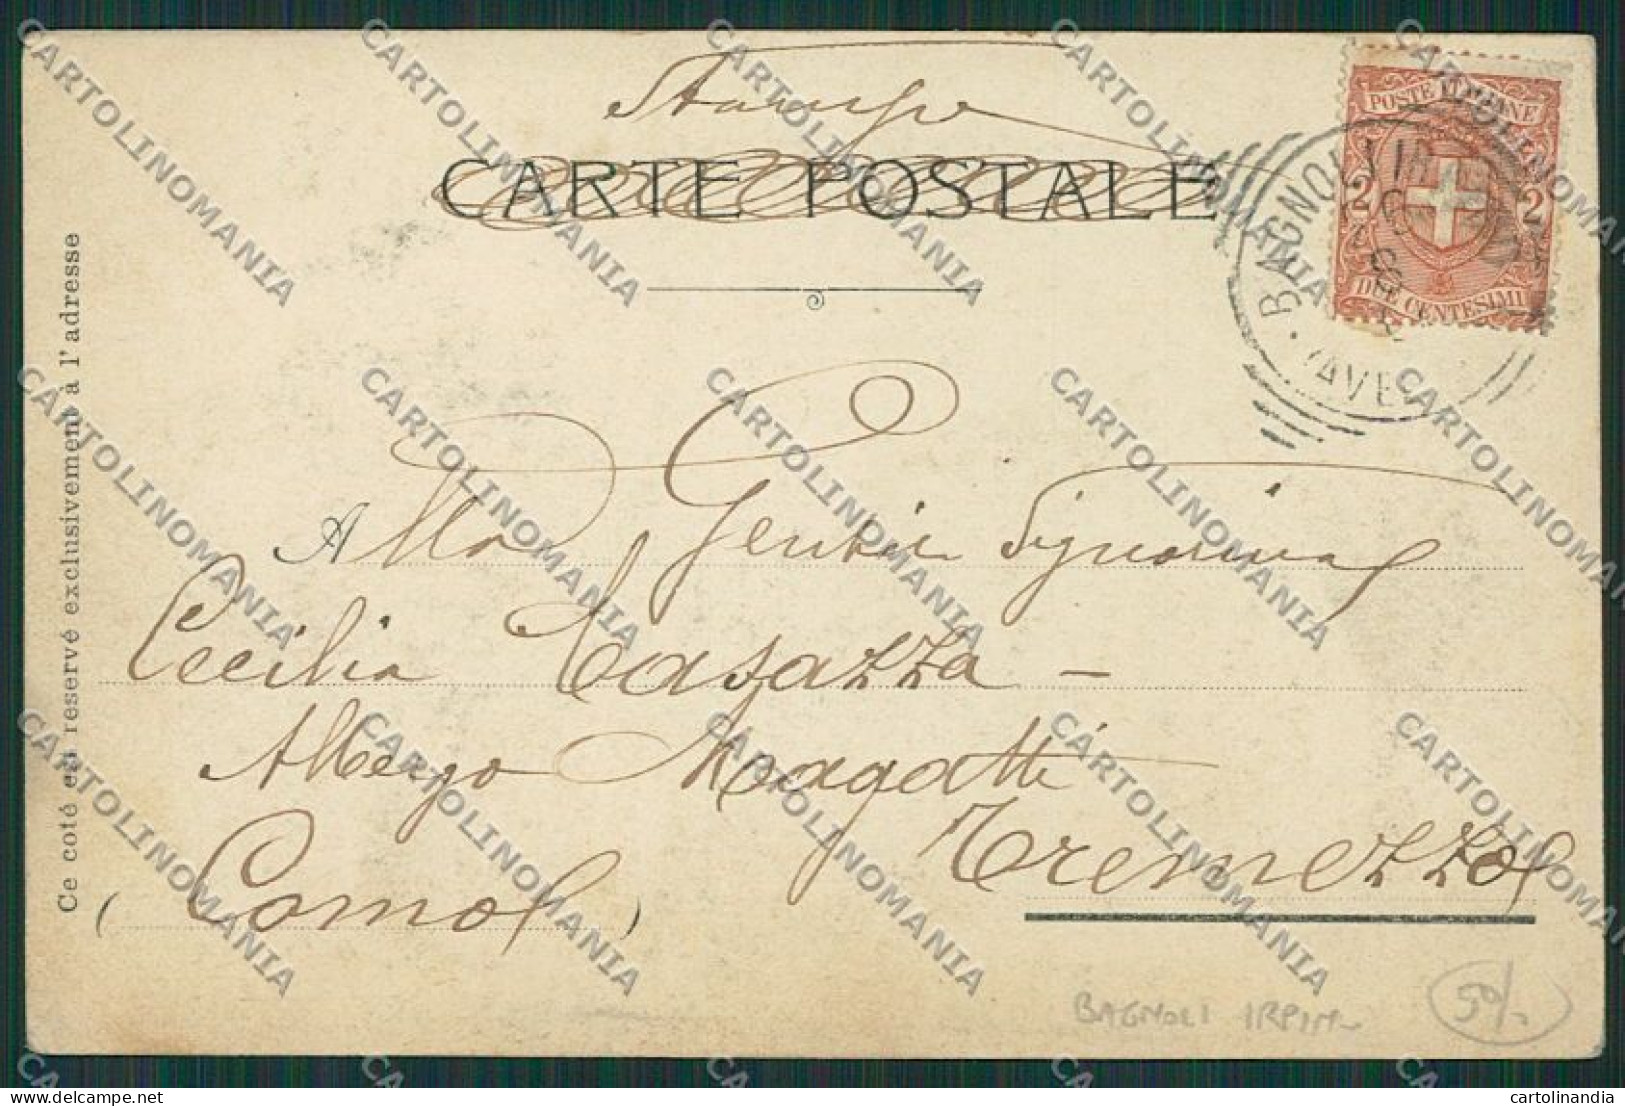 Stampe
CARTE POSTALE
POSTE ITALIANE
2 2
DUE CENTESIMI
BAGNOLI IR
(AVE
Ce coté est reservé exclusivement à l'adresse
Alla Gentil Signorina
Cecilia Casazza -
Albergo Magatti
Tremezzo
(Como)
BAGNOLI IRPIN
50/-
CARTOLINOMANIA
cartolinandia